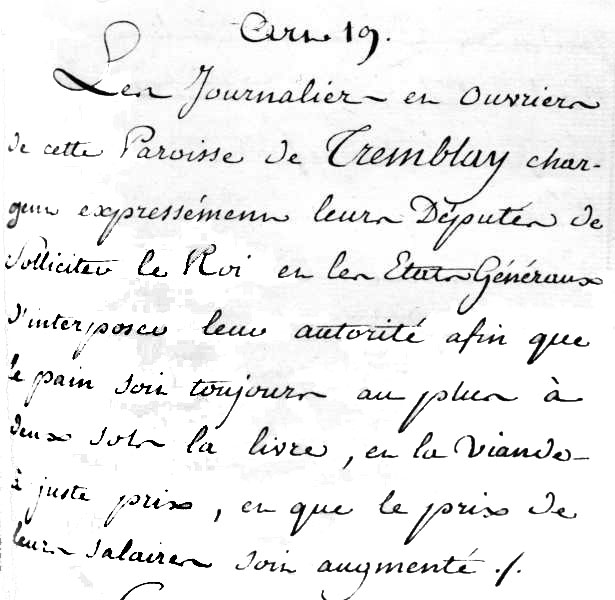 Art. 19.
Les Journaliers et Ouvriers
de cette Paroisse de Tremblay char-
gent expressément leurs Députés de
solliciter le Roi et les Etats Généraux
d'interposer leur autorité afin que
le pain soit toujours au plus à
deux sols la livre, et la Viande
à juste prix, et que le prix de
leurs salaires soit augmenté ./.